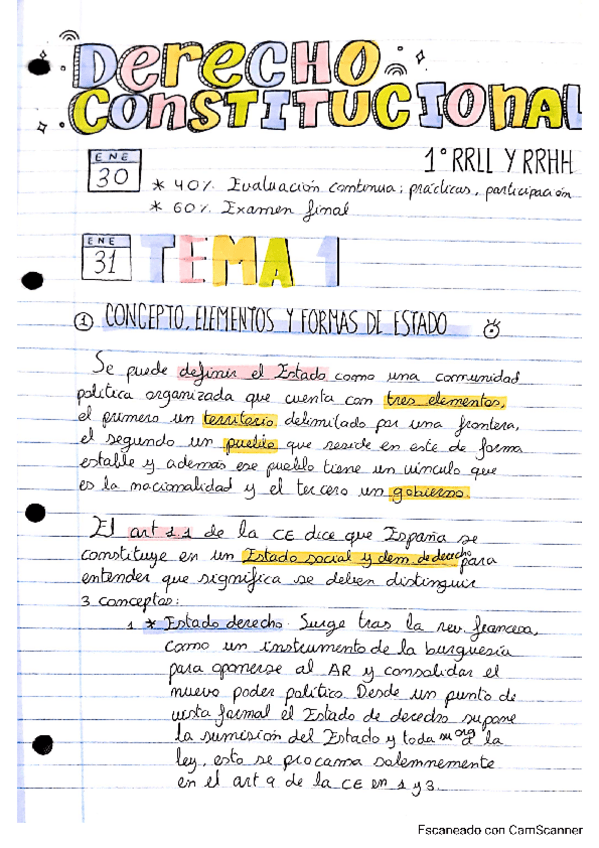 DERECHO
CONSTITUCIONAL
ENE
30
1º RRLL Y RRHH
* 40% Evaluación continua; prácticas, participación
* 60% Examen final
ENE
31
TEMA 1
① CONCEPTO, ELEMENTOS Y FORMAS DE ESTADO
Se puede definir el Estado como una comunidad
política organizada que cuenta con tres elementos,
el primero un territorio delimitado por una frontera,
el segundo un pueblo que reside en este de forma
estable y además ese pueblo tiene un vínculo que
es la nacionalidad y el tercero un gobierno.
El art 1.1 de la CE dice que España se
constituye en un Estado social y dem. de derecho para
entender que significa se deben distinguir
3 conceptos:
1 * Estado derecho. Surge tras la rev. francesa,
como un instrumento de la burguesía
para oponerse al AR y consolidar el
nuevo poder político. Desde un punto de
vista formal el Estado de derecho supone
la sumisión del Estado y toda su org a la
ley, esto se procama solemnemente
en el art 9 de la CE en 1 y 3.
Escaneado con CamScanner